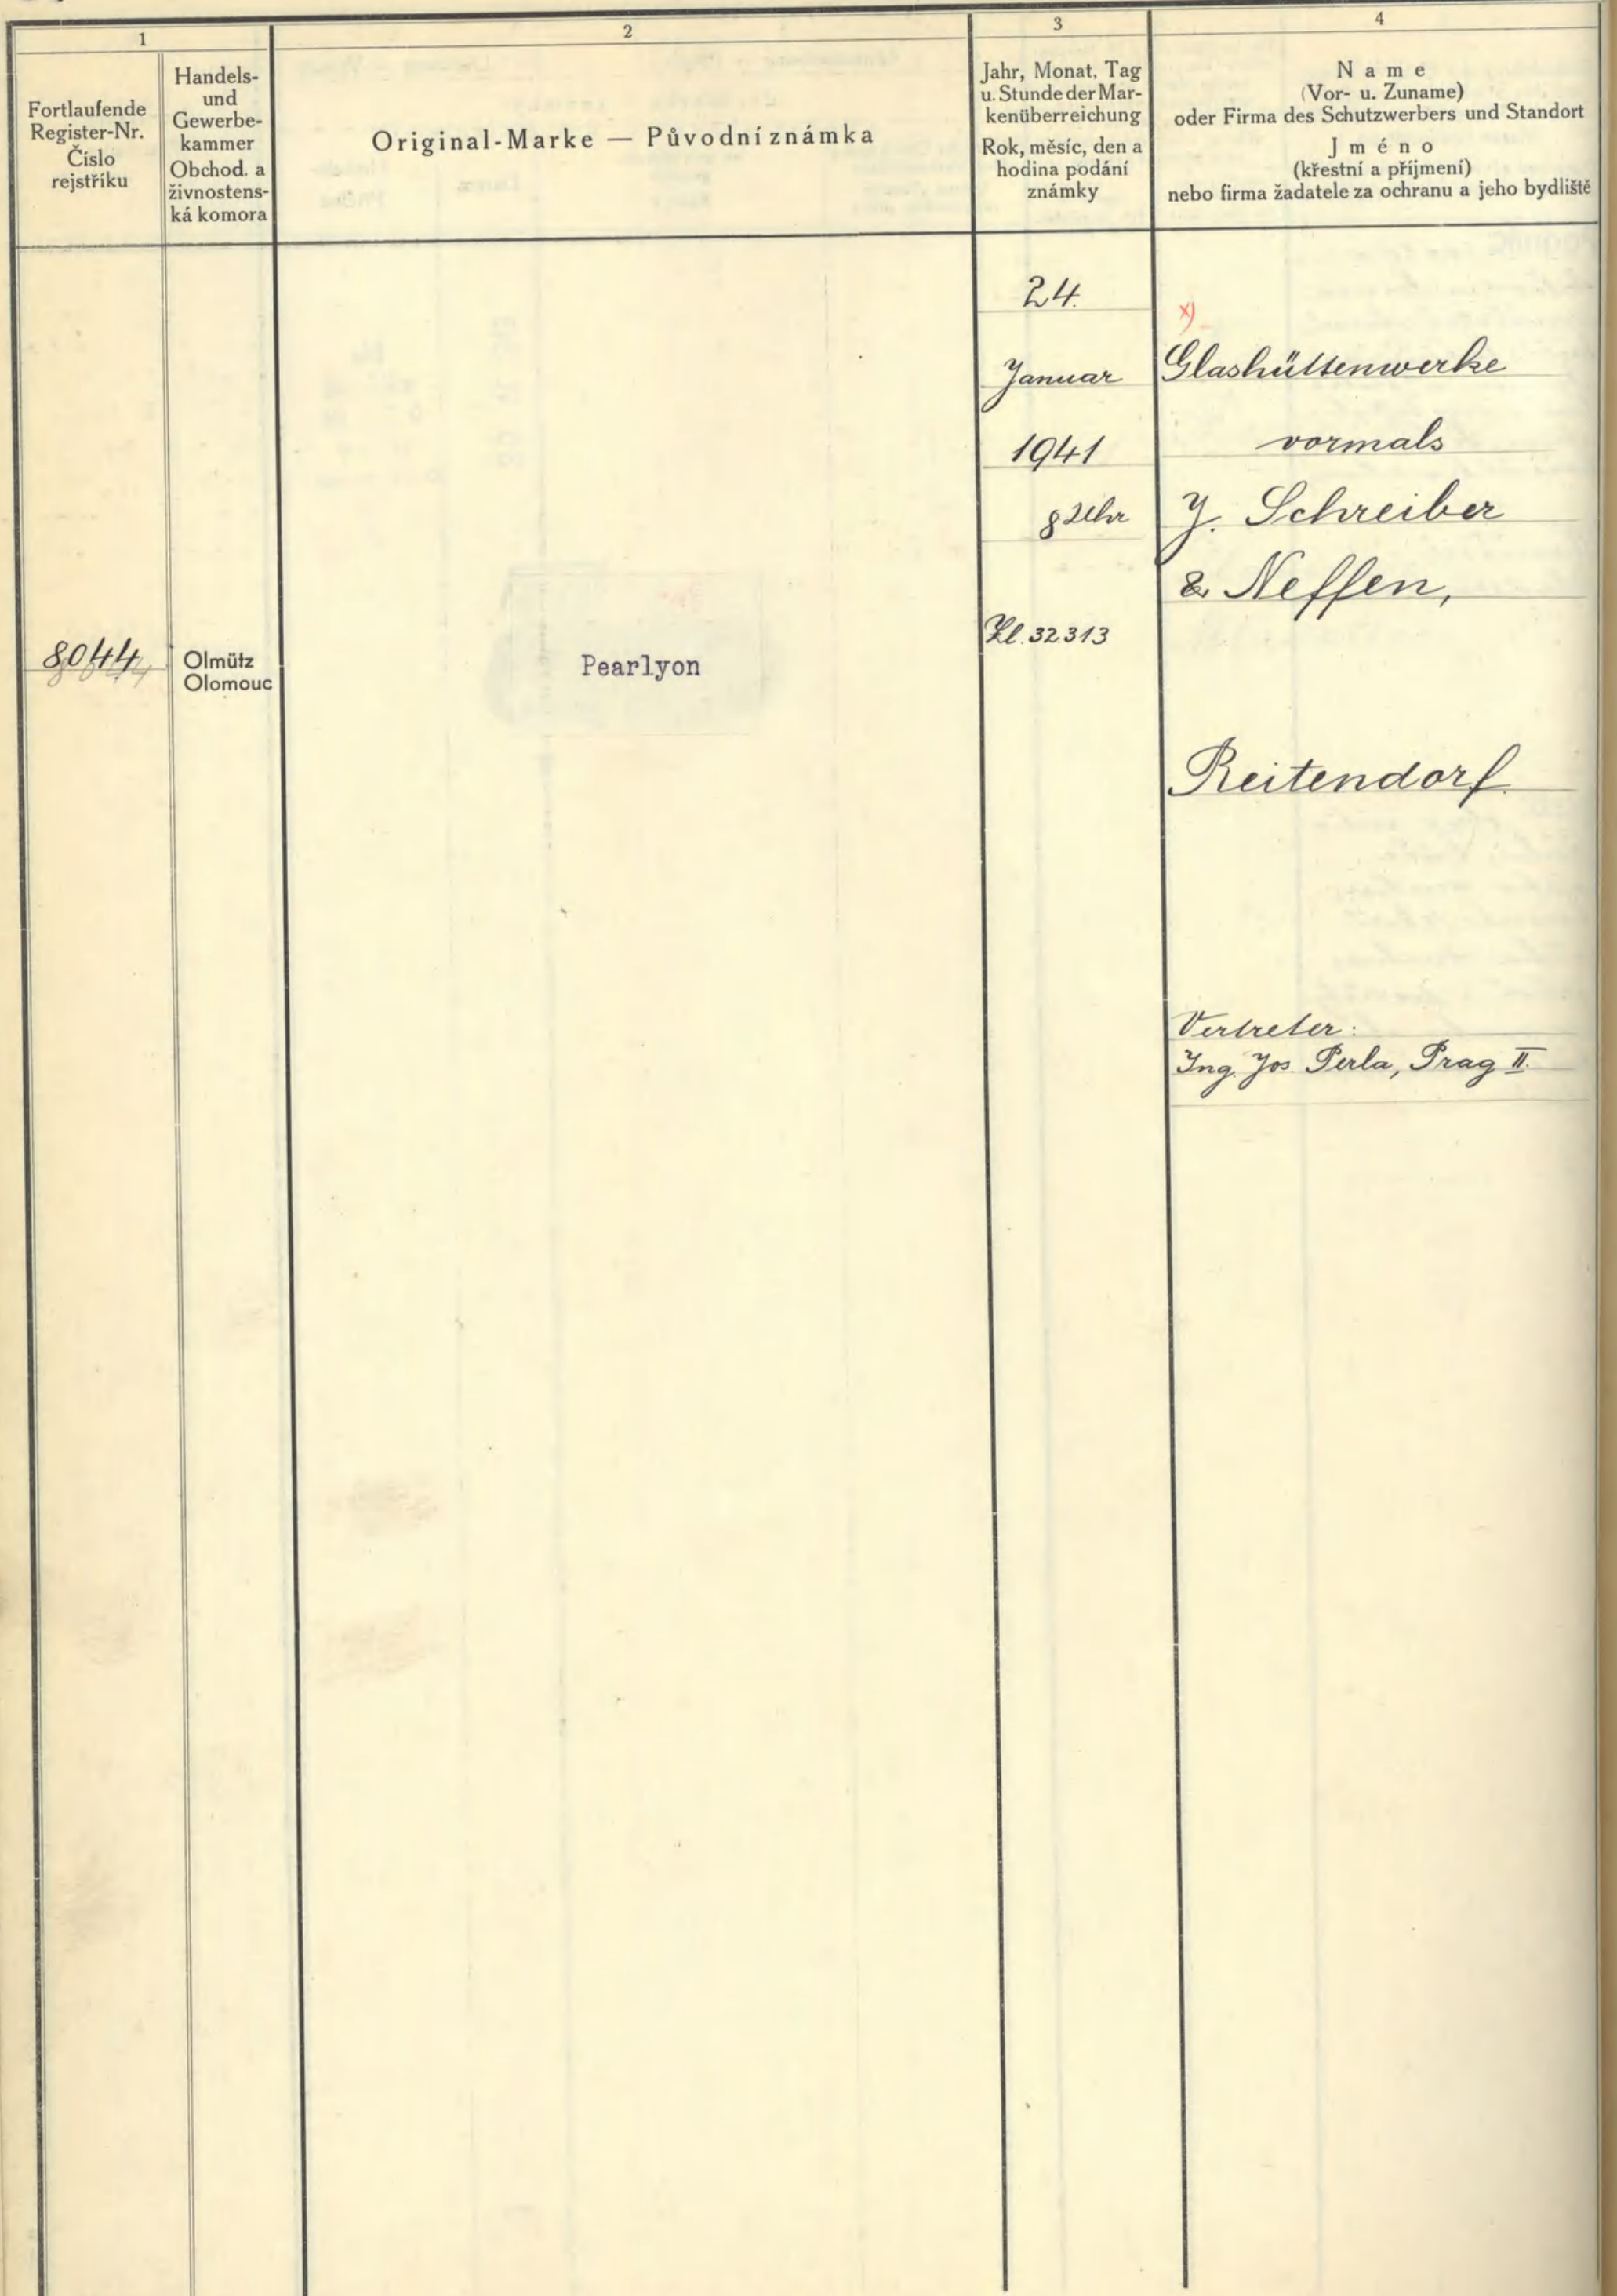 1
2
3
4
Fortlaufende
Register-Nr.
Číslo
rejstříku
Handels-
und
Gewerbe-
kammer
Obchod. a
živnostens-
ká komora
Original-Marke — Původní známka
Jahr, Monat, Tag
u. Stunde der Mar-
kenüberreichung
Rok, měsíc, den a
hodina podání
známky
Name
(Vor- u. Zuname)
oder Firma des Schutzwerbers und Standort
Jméno
(křestní a příjmení)
nebo firma žadatele za ochranu a jeho bydliště
8044
Olmütz
Olomouc
Pearlyon
24.
Januar
1941
8 Uhr
Zl. 32.313
x)
Glashüttenwerke
vormals
J. Schreiber
& Neffen,
Reitendorf.
Vertreter:
Ing. Jos. Perla, Prag II.